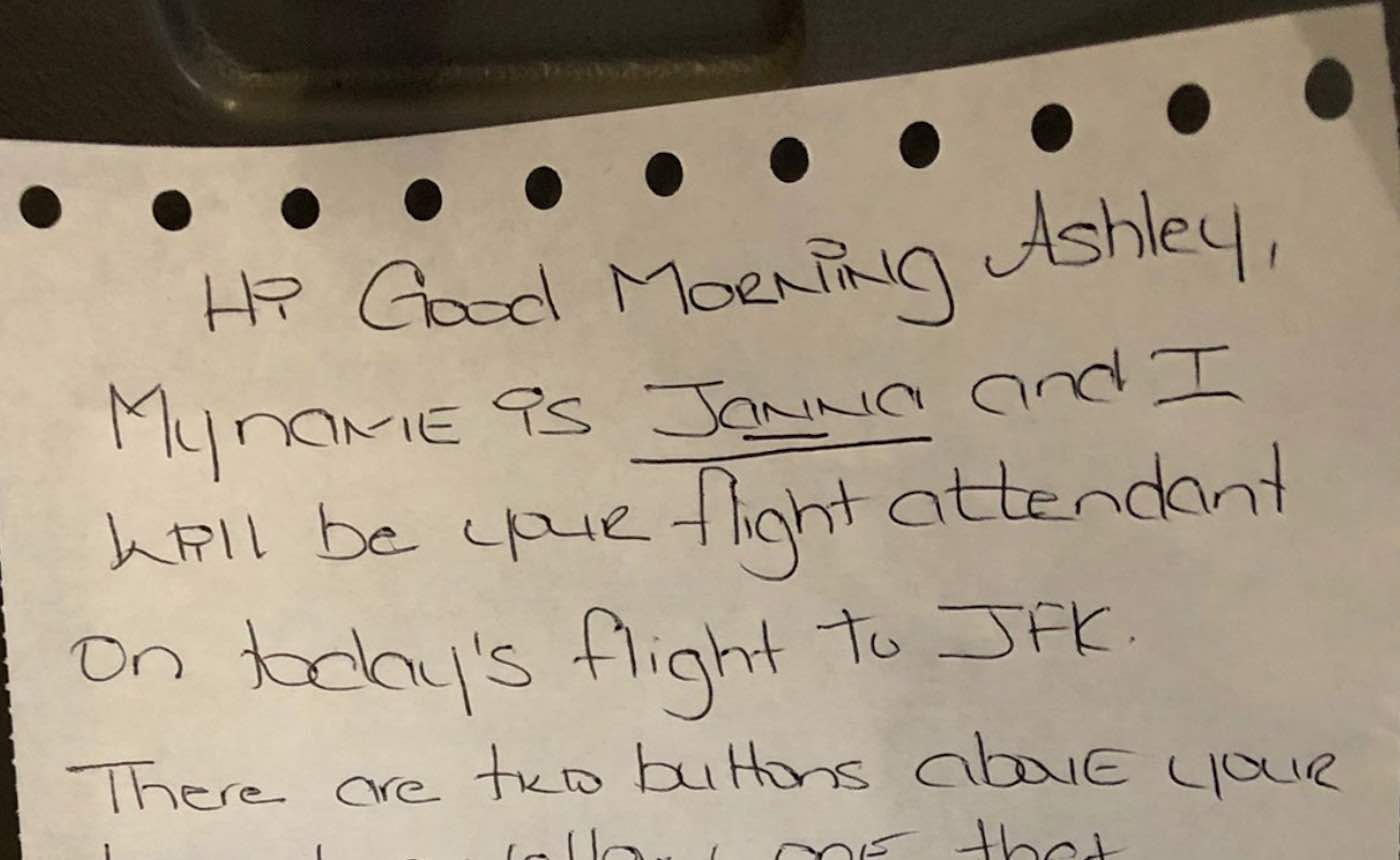 Hi Good Morning Ashley,
My name is Janna and I
will be your flight attendant
on today's flight to JFK.
There are two buttons above your
that